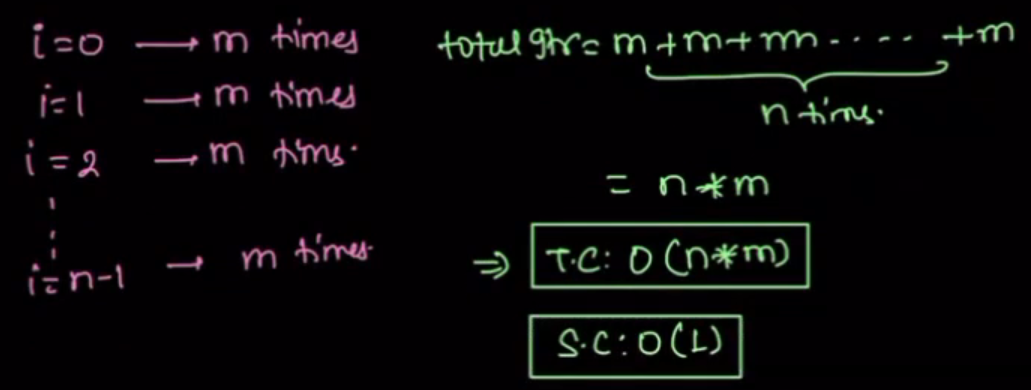 i=0 → m times
i=1 → m times
i=2 → m tims.
i=n-1 → m times.
total itr= m+m+m ..... +m
n tims.
= n*m
⇒ T.C: O(n*m)
S.C: O(1)